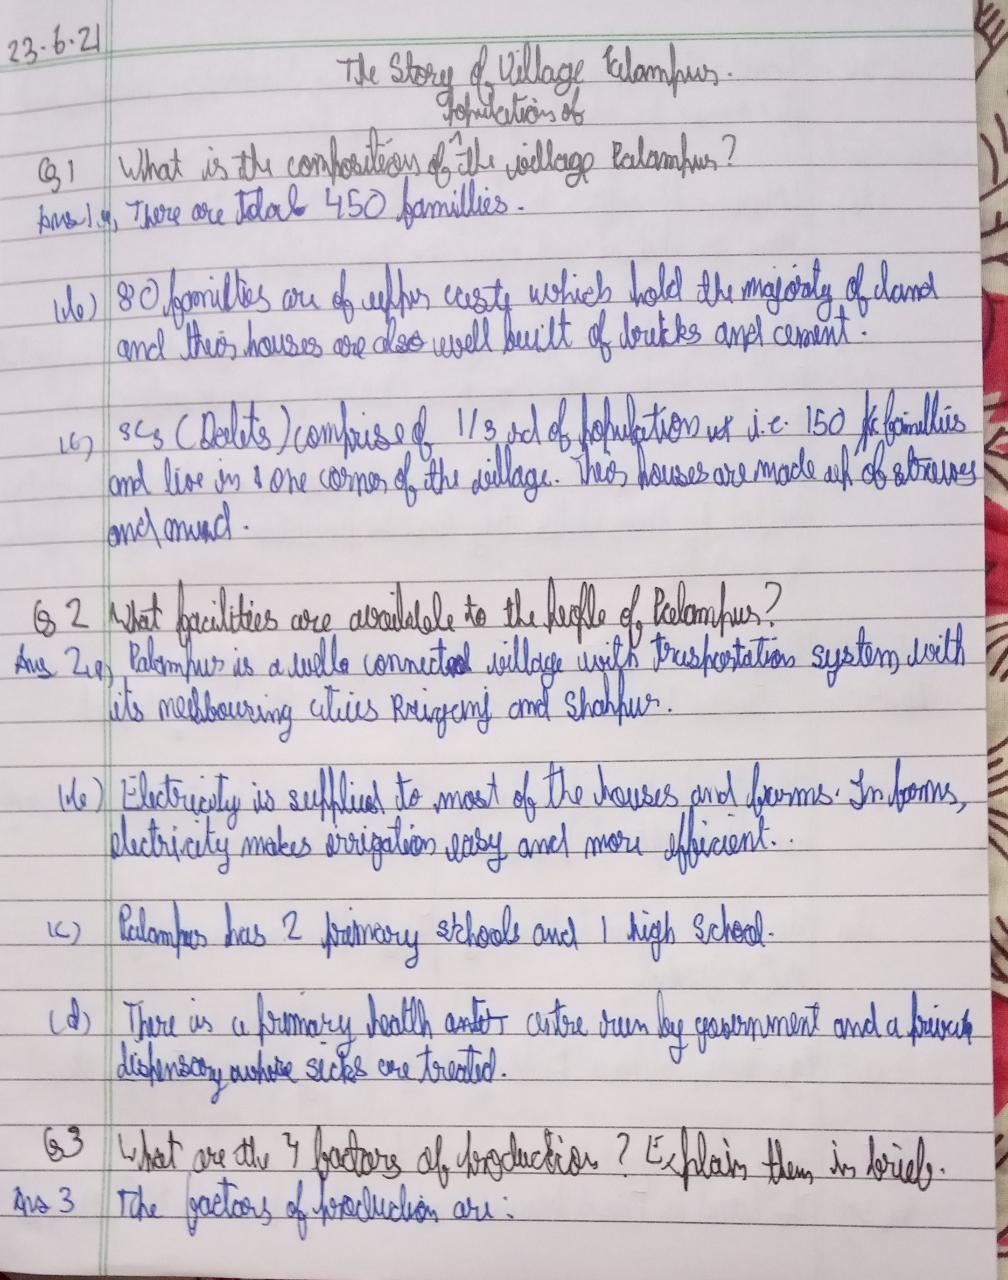 23.6.21
The Story of Village Palampur.
Population of
Q1 What is the composition of ^ the village Palampur?
Ans 1.a, There are total 450 famillies.
(b) 80 famillies are of upper caste which hold the majority of land
and their houses are also well built of bricks and cement.
(c) SCs (Dalits) comprise of 1/3 rd of population i.e. 150 famillies
and live in one corner of the village. Their houses are made up of straws
and mud.
Q 2 What facilities are available to the people of Palampur?
Ans 2.a, Palampur is a well connected village with trasportation system, with
its neghbouring cities Raiganj and Shahpur.
(b) Electricity is supplied to most of the houses and farms. In farms,
electricity makes irrigation easy and more efficient..
(c) Palampur has 2 primary schools and 1 high school.
(d) There is a primary health centre run by government and a private
dispensary where sicks are treated.
Q3 What are the 4 factors of production? Explain them in brief.
Ans 3 The factors of production are: